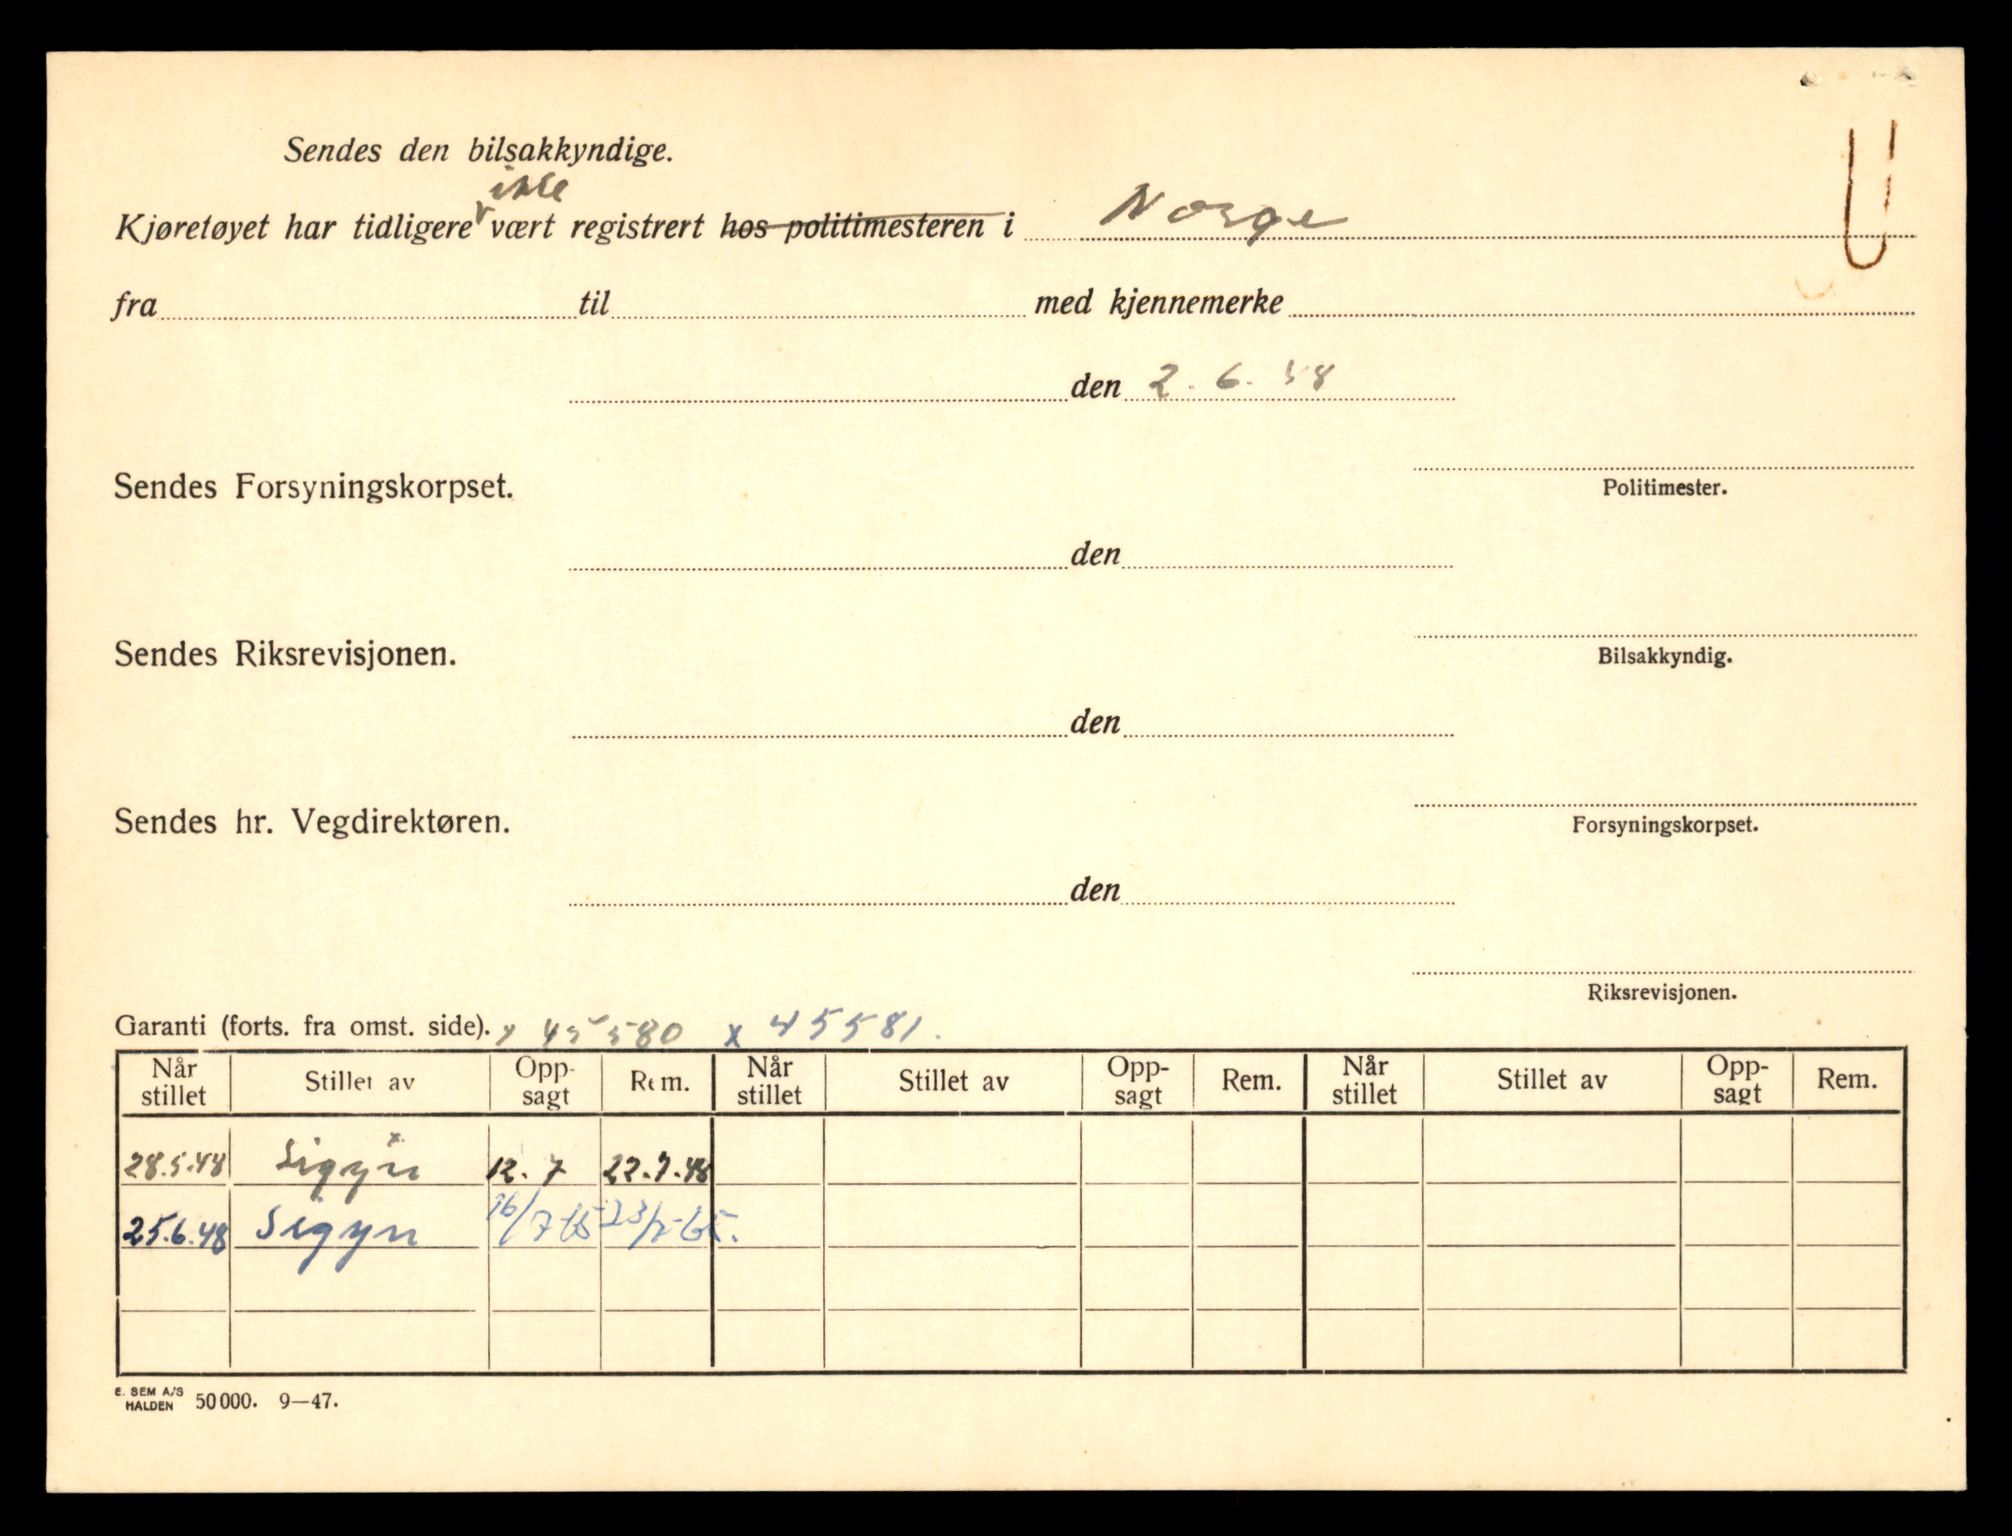 Sendes den bilsakkyndige.
Kjøretøyet har tidligere ikke vært registrert hos politimesteren i Norge
fra til med kjennemerke
den 2.6.48
Sendes Forsyningskorpset.
Politimester.
den
Sendes Riksrevisjonen.
Bilsakkyndig.
den
Sendes hr. Vegdirektøren.
Forsyningskorpset.
den
Riksrevisjonen.
Garanti (forts. fra omst. side). x 45580 x 45581.
Når stillet Stillet av Opp-sagt Rem. Når stillet Stillet av Opp-sagt Rem. Når stillet Stillet av Opp-sagt Rem.
28.5.48 Sigyn x 12.7 22.7.48
25.6.48 Sigyn 16/7-65 23/7-65.
E. SEM A/S HALDEN 50 000. 9—47.